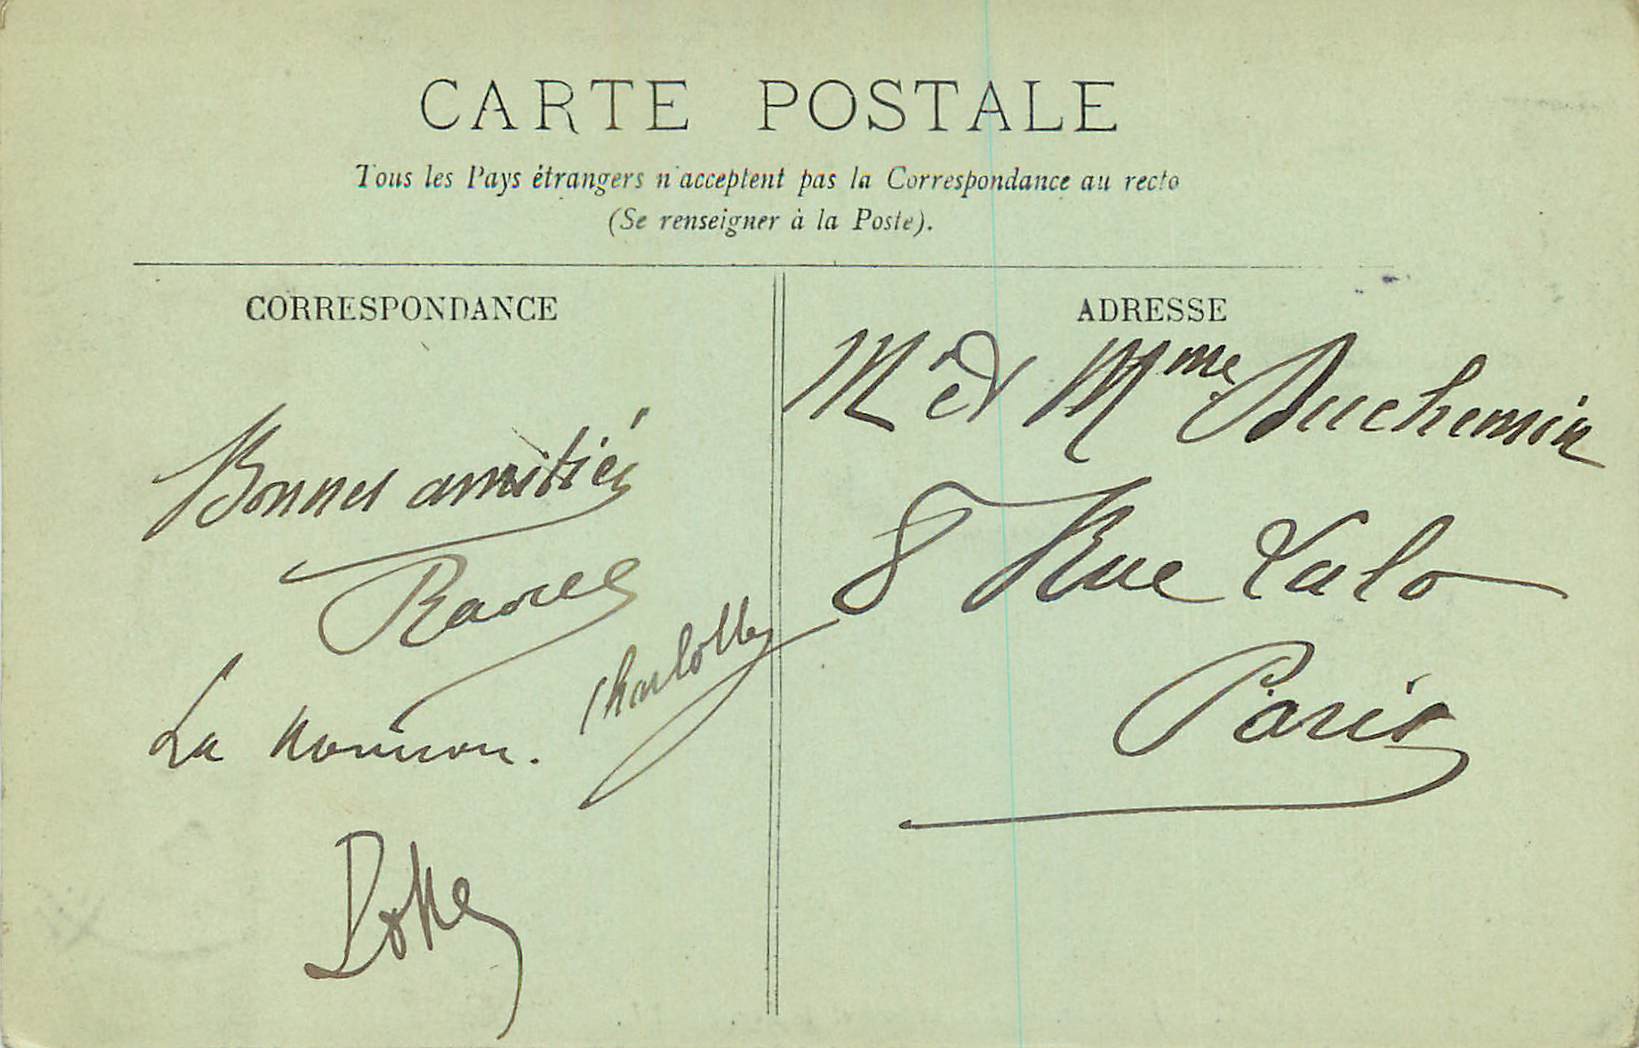 CARTE POSTALE
Tous les Pays étrangers n'acceptent pas la Correspondance au recto
(Se renseigner à la Poste).
CORRESPONDANCE
Bonnes amitiés
Raoul
Charlotte
La
ADRESSE
Mr et Mme Duchemin
8 Rue Lalo
Paris